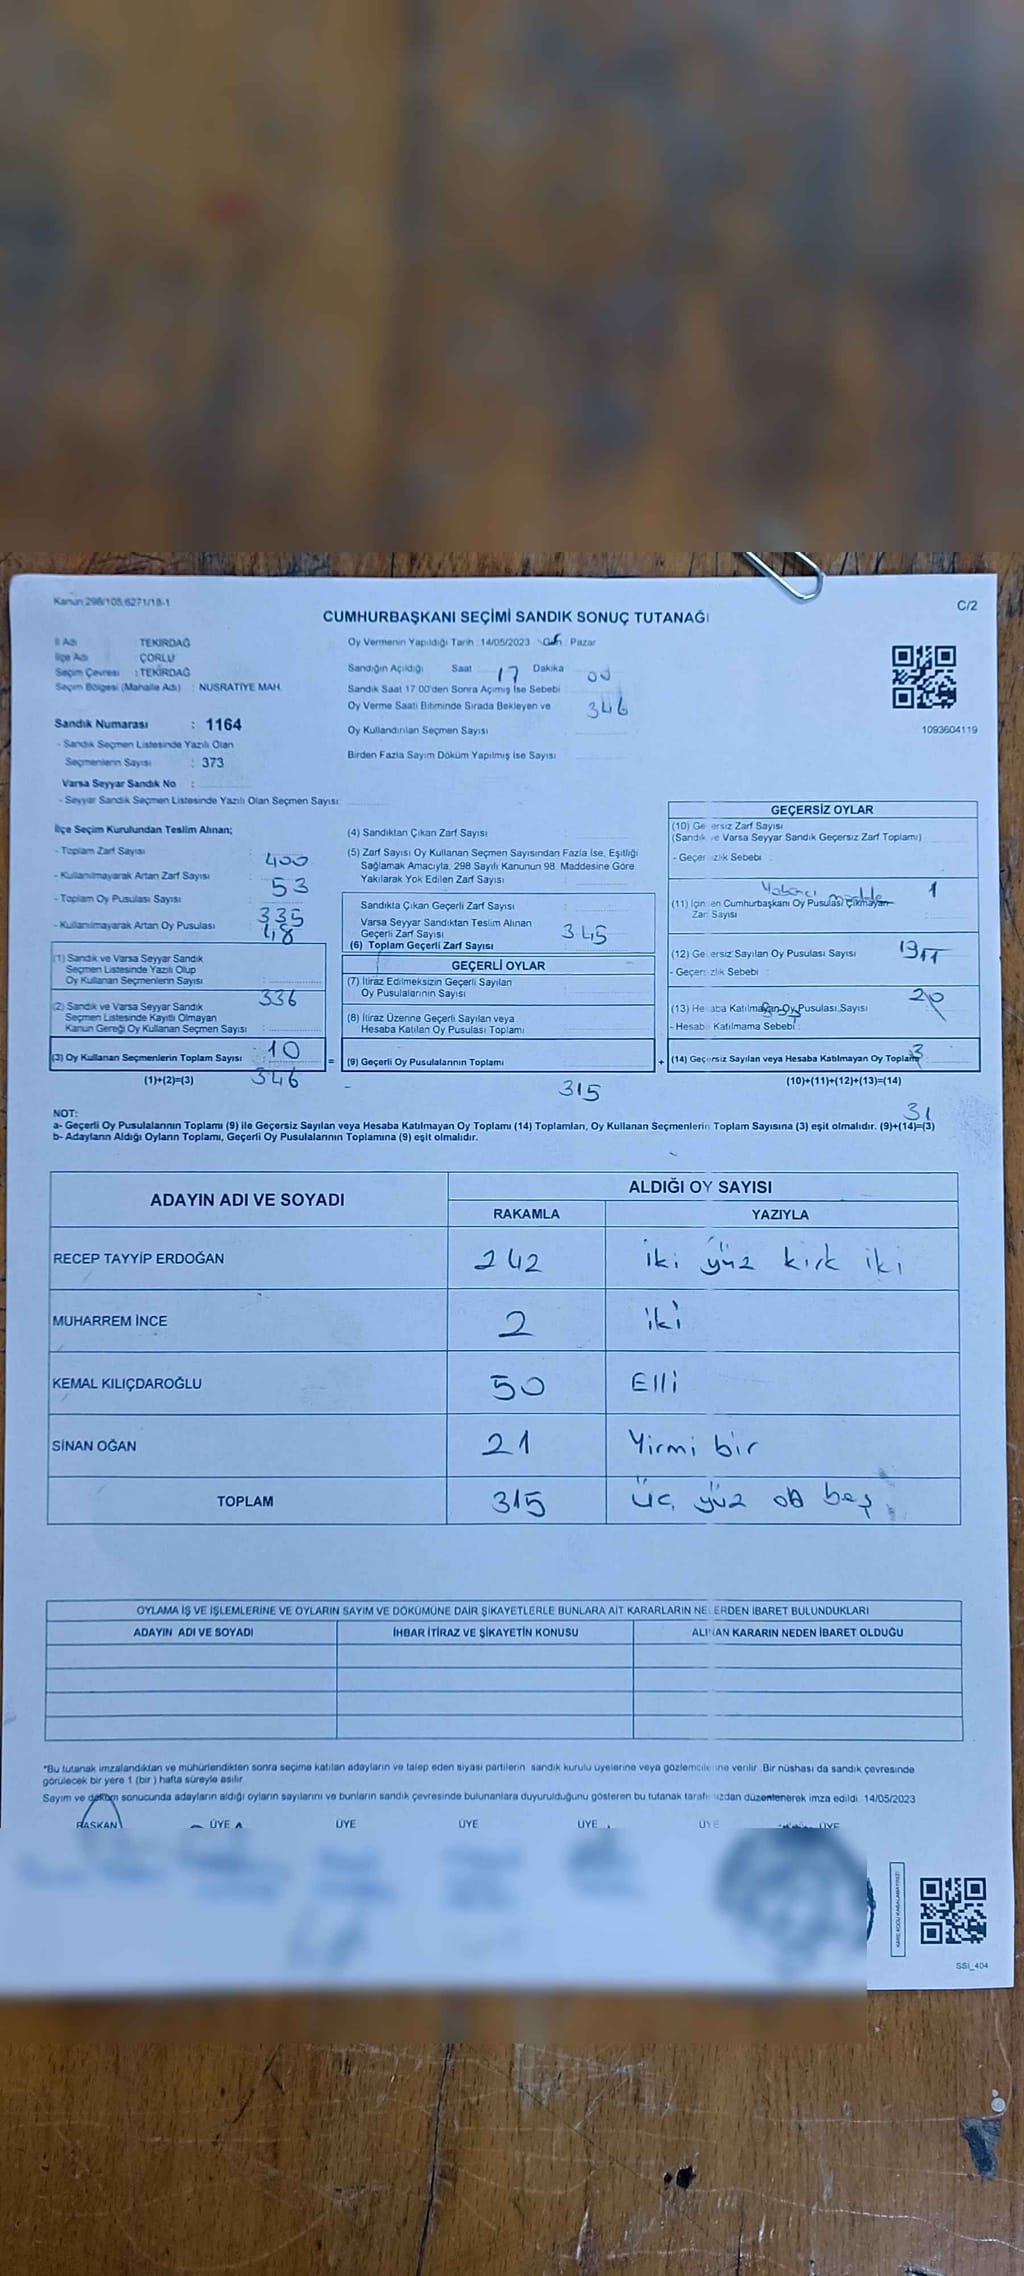 Kanun:298/105,6271/18-1
C/2
CUMHURBAŞKANI SEÇİMİ SANDIK SONUÇ TUTANAĞI
İl Adı TEKİRDAĞ
İlçe Adı ÇORLU
Seçim Çevresi : TEKİRDAĞ
Seçim Bölgesi (Mahalle Adı) : NUSRATİYE MAH.
Oy Vermenin Yapıldığı Tarih : 14/05/2023 Pazar
Sandığın Açıldığı Saat 17 Dakika 00
Sandık Saat 17.00'den Sonra Açımış İse Sebebi
Oy Verme Saati Bitiminde Sırada Bekleyen ve 346
Oy Kullandırılan Seçmen Sayısı
Birden Fazla Sayım Döküm Yapılmış İse Sayısı
1093604119
Sandık Numarası : 1164
- Sandık Seçmen Listesinde Yazılı Olan
Seçmenlerin Sayısı : 373
Varsa Seyyar Sandık No :
- Seyyar Sandık Seçmen Listesinde Yazılı Olan Seçmen Sayısı:
İlçe Seçim Kurulundan Teslim Alınan;
- Toplam Zarf Sayısı 400
- Kullanılmayarak Artan Zarf Sayısı 53
- Toplam Oy Pusulası Sayısı 335
- Kullanılmayarak Artan Oy Pusulası 48
(1) Sandık ve Varsa Seyyar Sandık
Seçmen Listesinde Yazılı Olup
Oy Kullanan Seçmenlerin Sayısı
336
(2) Sandık ve Varsa Seyyar Sandık
Seçmen Listesinde Kayıtlı Olmayan
Kanun Gereği Oy Kullanan Seçmen Sayısı :
10
(3) Oy Kullanan Seçmenlerin Toplam Sayısı
(1)+(2)=(3) 346
(4) Sandıktan Çıkan Zarf Sayısı
(5) Zarf Sayısı Oy Kullanan Seçmen Sayısından Fazla İse, Eşitliği
Sağlamak Amacıyla, 298 Sayılı Kanunun 98. Maddesine Göre
Yakılarak Yok Edilen Zarf Sayısı
Sandıkta Çıkan Geçerli Zarf Sayısı
Varsa Seyyar Sandıktan Teslim Alınan
Geçerli Zarf Sayısı 345
(6) Toplam Geçerli Zarf Sayısı
GEÇERLİ OYLAR
(7) İtiraz Edilmeksizin Geçerli Sayılan
Oy Pusulalarının Sayısı
(8) İtiraz Üzerine Geçerli Sayılan veya
Hesaba Katılan Oy Pusulası Toplamı
= (9) Geçerli Oy Pusulalarının Toplamı
315
GEÇERSİZ OYLAR
(10) Geçersiz Zarf Sayısı
(Sandık ve Varsa Seyyar Sandık Geçersiz Zarf Toplamı)
- Geçersizlik Sebebi :
Yabancı madde 1
(11) İçinden Cumhurbaşkanı Oy Pusulası Çıkmayan
Zarf Sayısı
(12) Geçersiz Sayılan Oy Pusulası Sayısı
- Geçersizlik Sebebi
(13) Hesaba Katılmayan Oy Pusulası Sayısı
- Hesaba Katılmama Sebebi :
+ (14) Geçersiz Sayılan veya Hesaba Katılmayan Oy Toplamı
(10)+(11)+(12)+(13)=(14)
31
NOT:
a- Geçerli Oy Pusulalarının Toplamı (9) ile Geçersiz Sayılan veya Hesaba Katılmayan Oy Toplamı (14) Toplamları, Oy Kullanan Seçmenlerin Toplam Sayısına (3) eşit olmalıdır. (9)+(14)=(3)
b- Adayların Aldığı Oyların Toplamı, Geçerli Oy Pusulalarının Toplamına (9) eşit olmalıdır.
ADAYIN ADI VE SOYADI ALDIĞI OY SAYISI
RAKAMLA YAZIYLA
RECEP TAYYİP ERDOĞAN 242 iki yüz kırk iki
MUHARREM İNCE 2 iki
KEMAL KILIÇDAROĞLU 50 Elli
SİNAN OĞAN 21 Yirmi bir
TOPLAM 315 üç yüz on beş
OYLAMA İŞ VE İŞLEMLERİNE VE OYLARIN SAYIM VE DÖKÜMÜNE DAİR ŞİKAYETLERLE BUNLARA AİT KARARLARIN NELERDEN İBARET BULUNDUKLARI
ADAYIN ADI VE SOYADI İHBAR İTİRAZ VE ŞİKAYETİN KONUSU ALINAN KARARIN NEDEN İBARET OLDUĞU
*Bu tutanak imzalandıktan ve mühürlendikten sonra seçime katılan adayların ve talep eden siyasi partilerin sandık kurulu üyelerine veya gözlemcilerine verilir. Bir nüshası da sandık çevresinde
görülecek bir yere 1 (bir) hafta süreyle asılır.
Sayım ve döküm sonucunda adayların aldığı oyların sayılarını ve bunların sandık çevresinde bulunanlara duyurulduğunu gösteren bu tutanak tarafımızdan düzenlenerek imza edildi. 14/05/2023
BAŞKAN ÜYE ÜYE ÜYE ÜYE ÜYE ÜYE
SSI_404